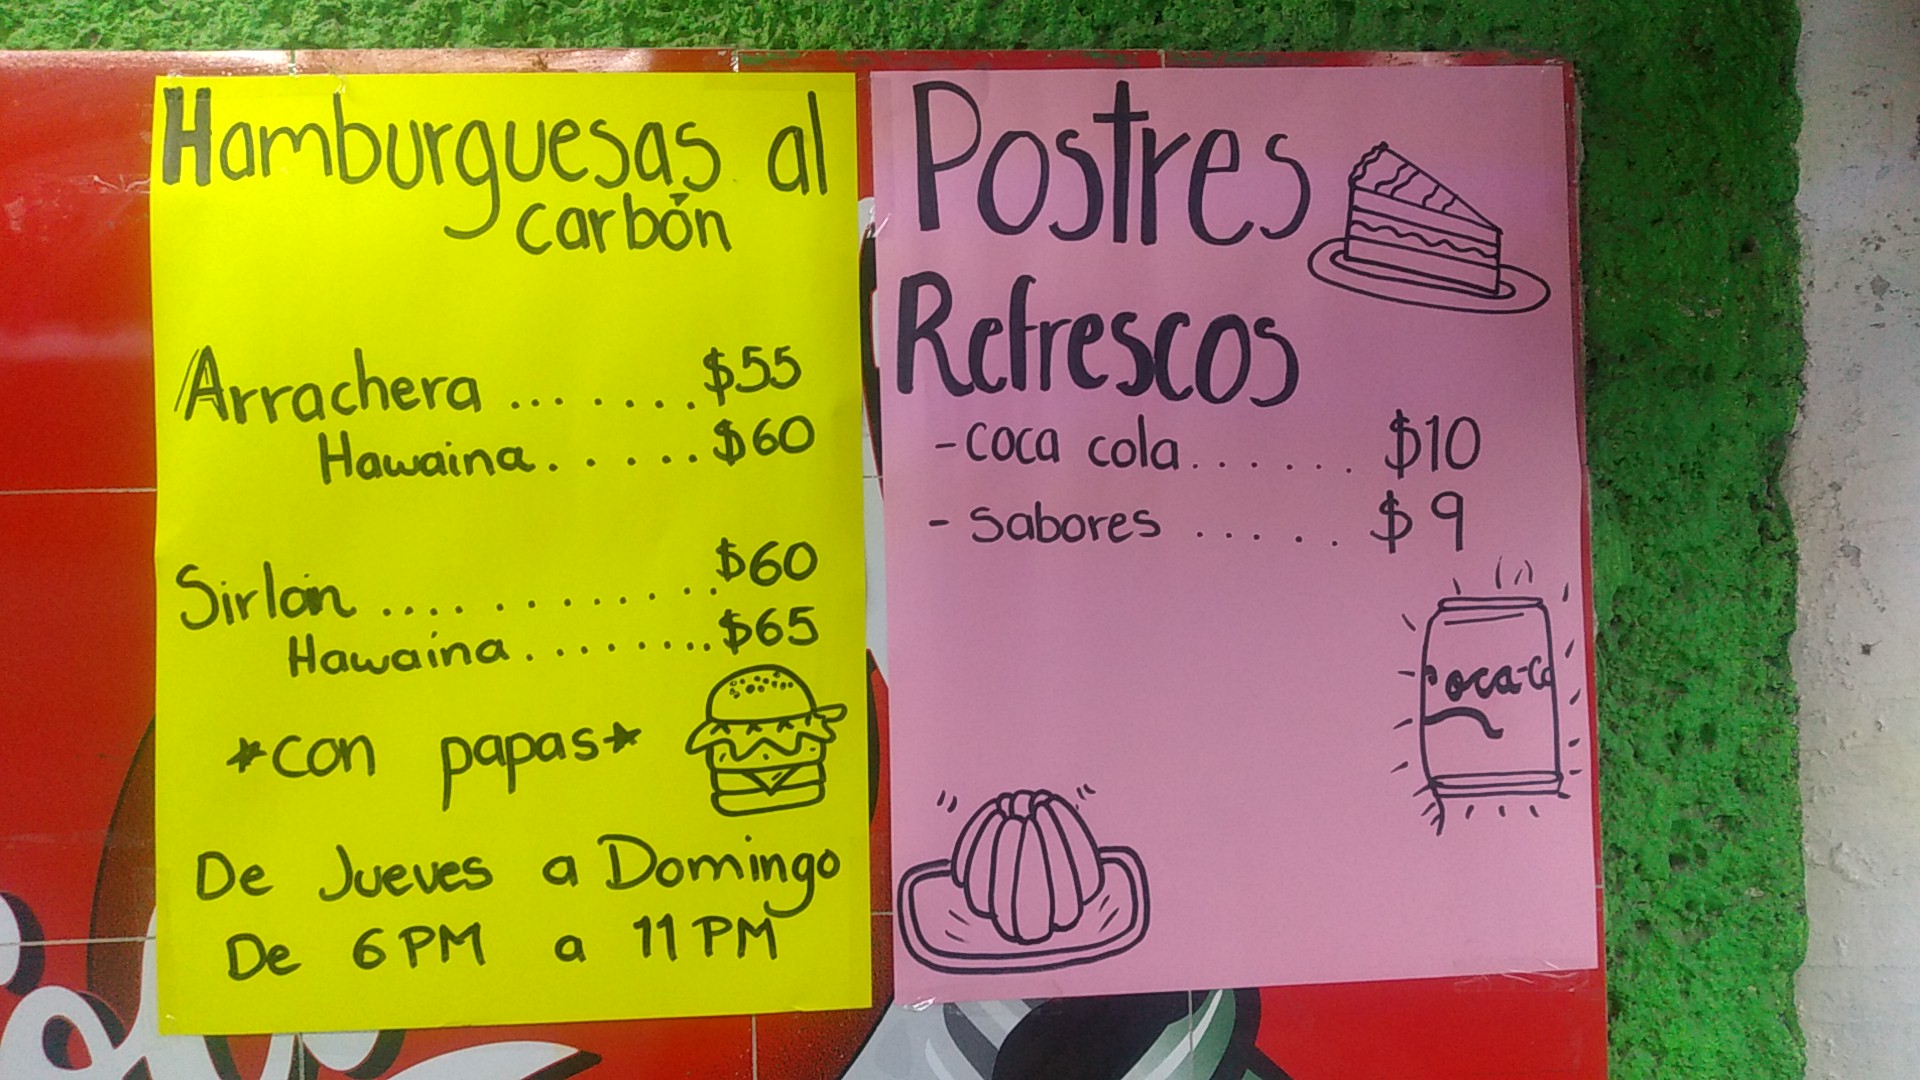 Hamburguesas al
carbón
Arrachera ....... $55
Hawaina...... $60
Sirlon ............. $60
Hawaina........ $65
*con papas*
De Jueves a Domingo
De 6PM a 11PM
Postres
Refrescos
-coca cola....... $10
- sabores ..... $9
oca-Co